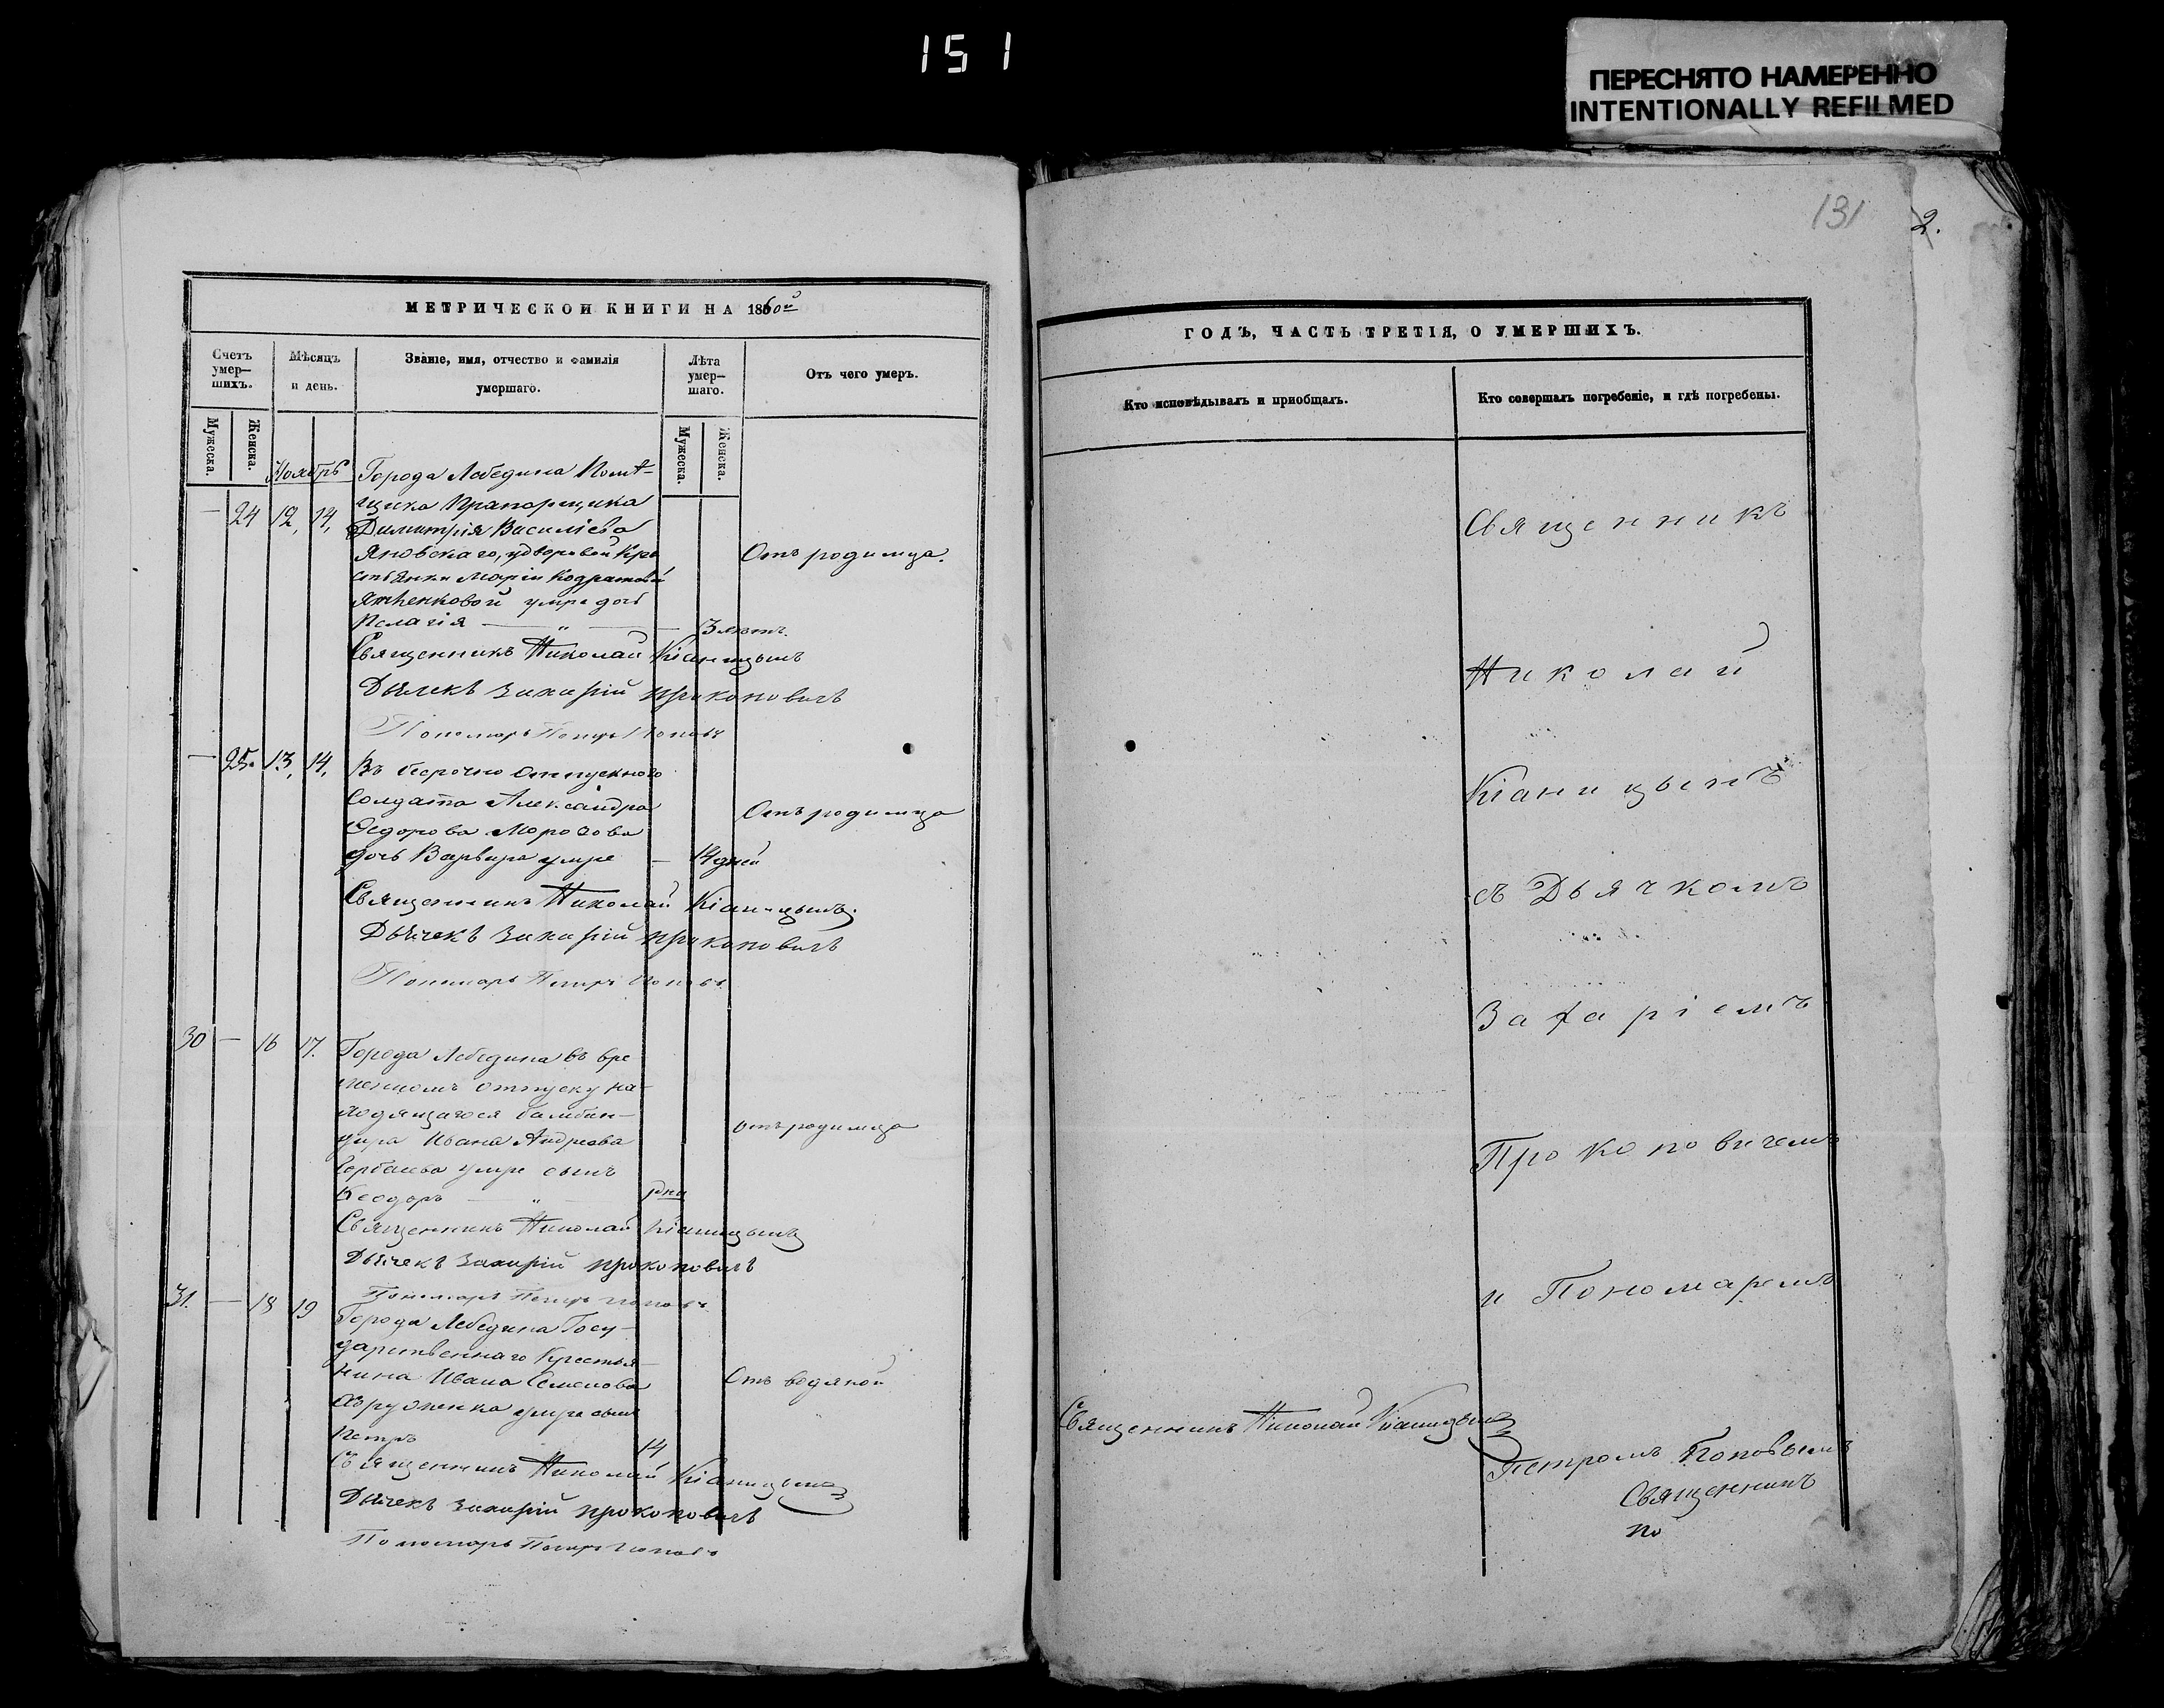 151
ПЕРЕСНЯТО НАМЕРЕННО
INTENTIONALLY REFILMED
131
2.
МЕТРИЧЕСКОЙ КНИГИ НА 1860й
Счетъ умер–шихъ.
Мѣсяцъ и день.
Званіе, имя, отчество и фамилія умершаго.
Лѣта умер–шаго.
Отъ чего умеръ.
Мужеска.
Женска.
Мужеска.
Женска.
Ноябрь
Города Лебедина Помѣ-
— 24 12, 14,
щика Прапорщика
Димитрія Василіева
Яновскаго, дворовой Кре
стьянки Маріи Кодратовой
умре дочь
Пелагія — „ — 3 лѣтъ.
Отъ родимца.
Священникъ Николай Кіаницынъ
Дьячекъ Захарій Прокоповичъ
Пономарь Петръ Поповъ
— 25. 13, 14,
Въ безрочно отпускнаго
Солдата Александра
Ѳедорова Морозова
дочь Варвара умре — 14 дней
Отъ родимца
Священникъ Николай Кіаницынъ
Дьячекъ Захарій Прокоповичъ
Пономарь Петръ Поповъ
30 — 16 17.
Города Лебедина въ вре
менномъ отпуску на-
ходящагося бомбан-
дира Ивана Андреева
умре сынъ
Ѳеодоръ — „ — дни
отъ родимца
Священникъ Николай Кіаницынъ
Дьячекъ Захарій Прокоповичъ
Пономарь Петръ Поповъ
31. — 18 19
Города Лебедина Госу-
дарственнаго Крестья-
нина Ивана Семенова
умре сынъ
Петръ 14
Отъ водяной
Священникъ Николай Кіаницынъ
Дьячекъ Захарій Прокоповичъ
Пономарь Петръ Поповъ
ГОДЪ, ЧАСТЬ ТРЕТІЯ, О УМЕРШИХЪ.
Кто исповѣдывалъ и пріобщалъ.
Кто совершалъ погребеніе, и гдѣ погребены.
Священникъ
Николай
Кіаницынъ
съ Дьячкомъ
Захаріемъ
Прокоповичемъ
и Пономаремъ
Петромъ Поповымъ
Священникъ Николай Кіаницынъ
Священникъ
по